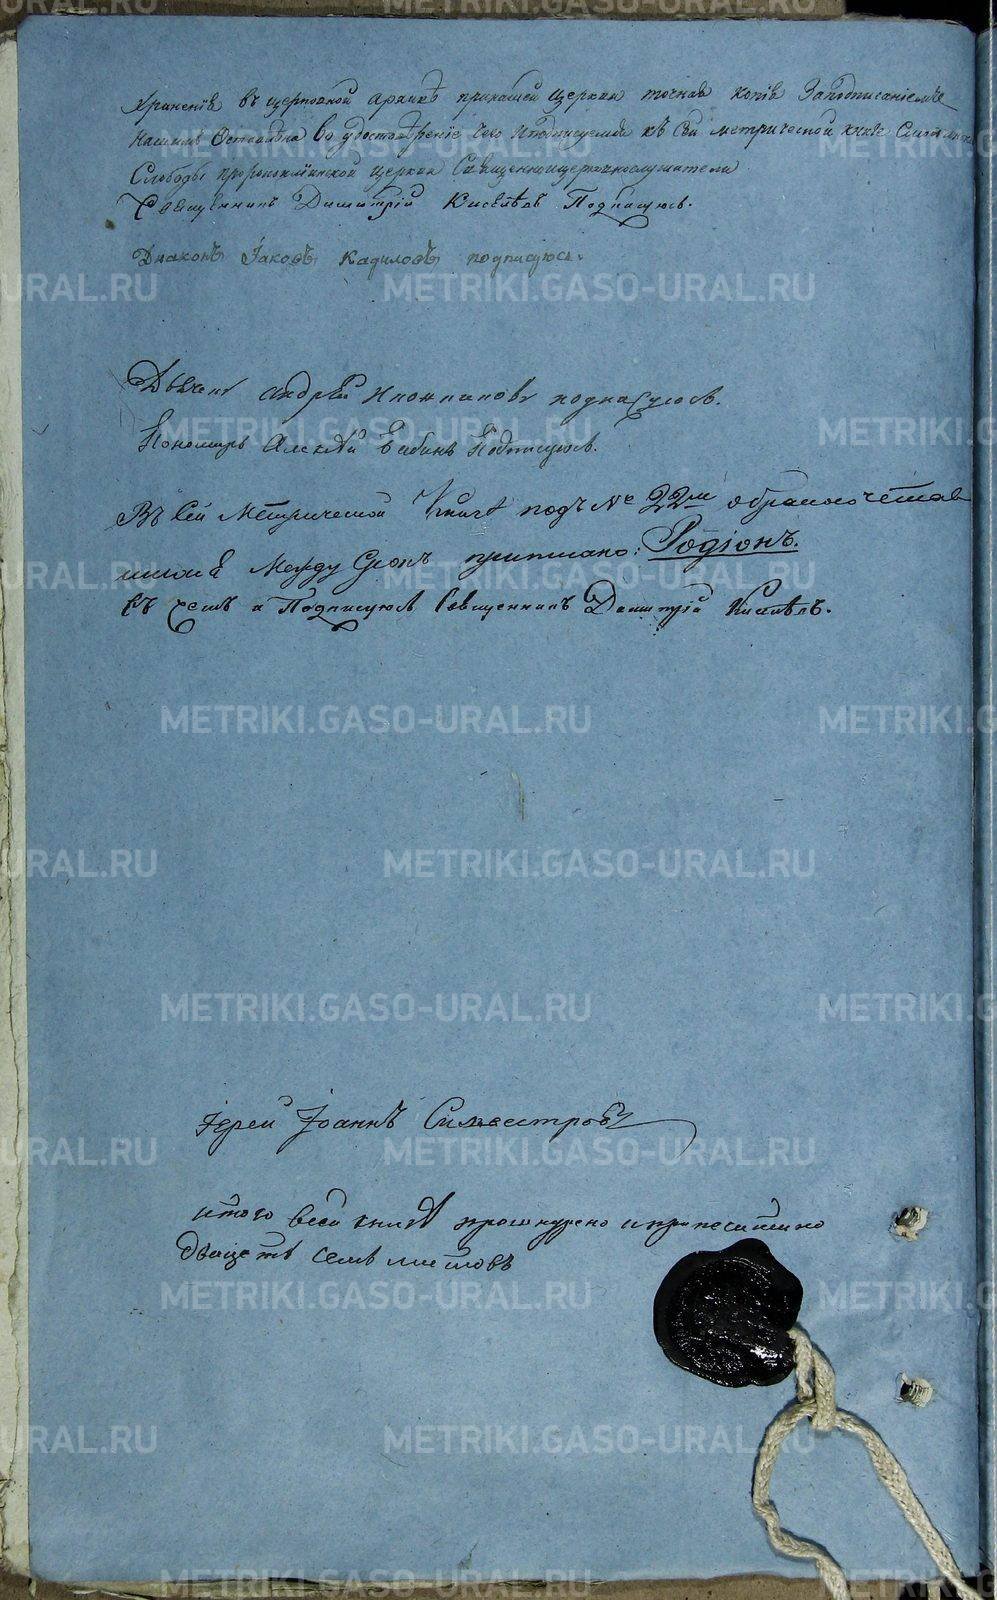 храненія въ церковной архивѣ при нашей церкви точная копія За подписаніемъ
нашимъ Оставлена Во удостовѣреніе чего и подписуемся къ Сей метрической книгѣ
Слободы церкви Священноцерковнослужители
Священникъ Димитрій Киселевъ Подписуюсь.
Діаконъ Іаковъ Кадиловъ подписуюсь.
Дьячекъ Андрей подписуюсь.
Пономарь Алексѣй Бабинъ Подписуюсь.
Въ Сей Метрической Книгѣ подъ № 22мъ о бракосочетав
шихся Между Срокъ приписано: Родіонъ.
Въ чемъ и Подписуюсь Священникъ Димитрій Киселевъ.
Іерей Іоаннъ Сильвестровъ
итого всей книгѣ прошнурено и припечатано
дватцеть семь листовъ
METRIKI.GASO-URAL.RU